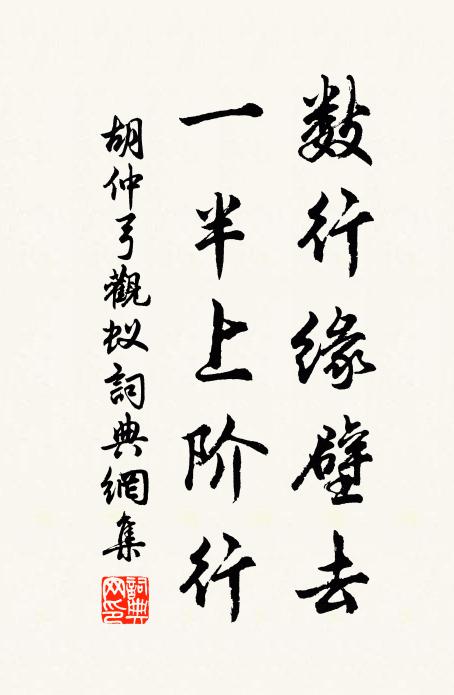 数行缘壁去
一半上阶行
胡仲弓觀蚁詞典網集
詞典網印